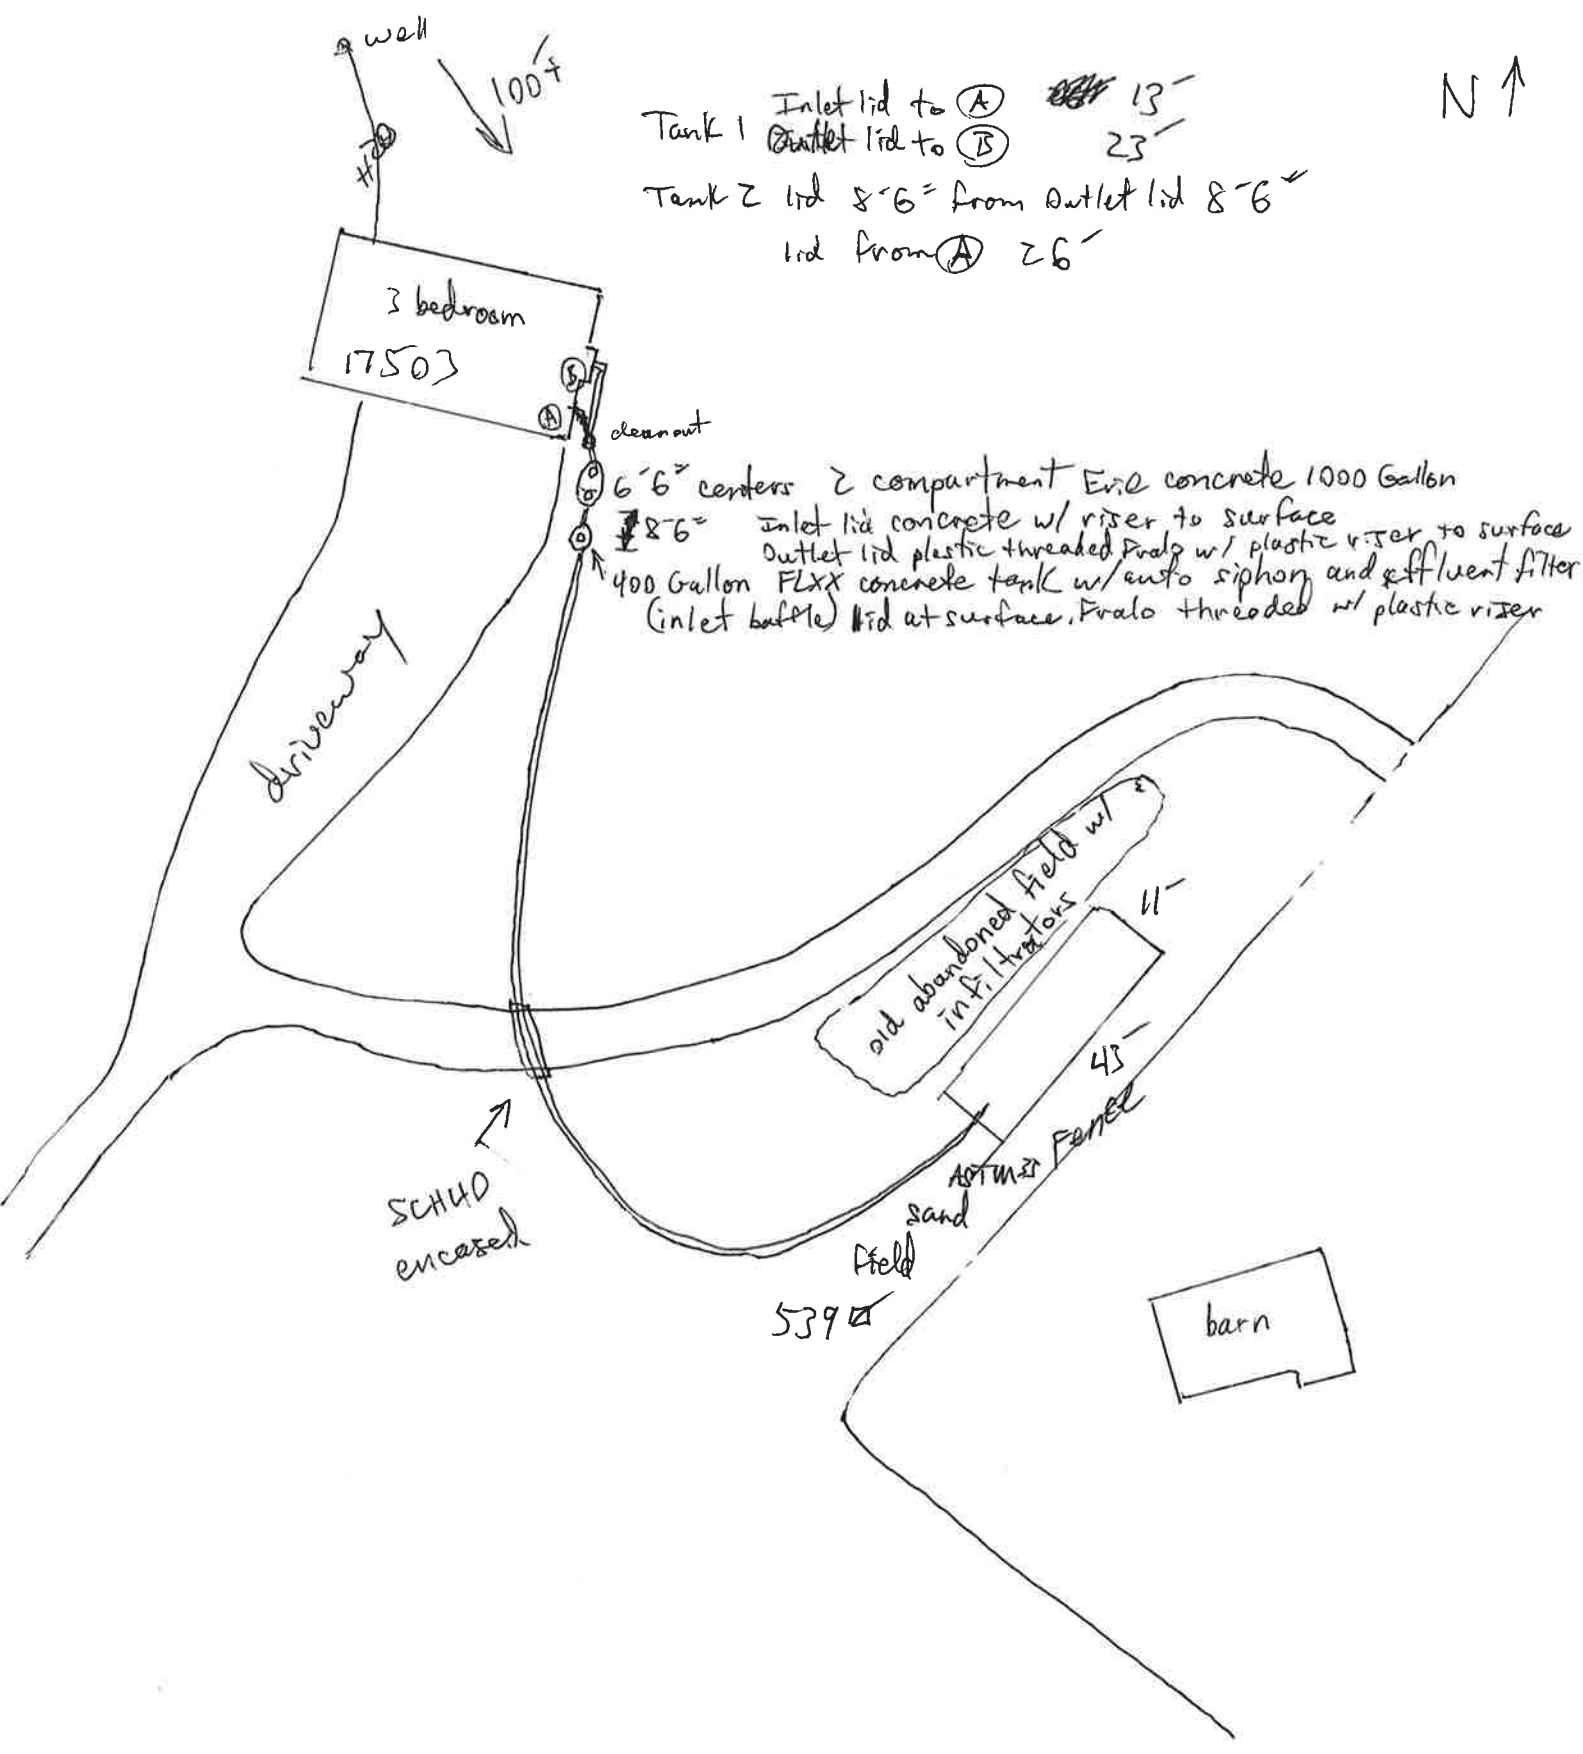 well
100'±
N
Tank 1 Inlet lid to A 13'
Outlet lid to B 23'
Tank 2 lid 8'-6" from Outlet lid 8'-6"
lid from A 26'
H2O
3 bedroom
17503
B
A
cleanout
6'6" centers 2 compartment Erie concrete 1000 Gallon
8'-6" Inlet lid concrete w/ riser to surface
Outlet lid plastic threaded Fralo w/ plastic riser to surface
400 Gallon FLXX concrete tank w/ auto siphon and effluent filter
(inlet baffle) lid at surface. Fralo threaded w/ plastic riser
driveway
old abandoned field w/
infiltrators
11'
43'
Fence
SCH40
encased
ASTM33
sand
field
539
barn